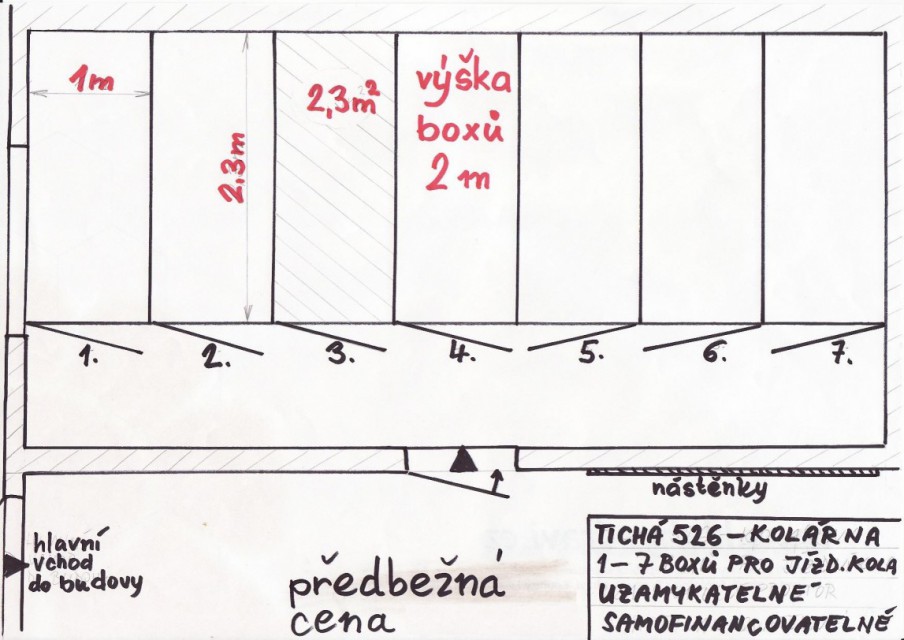 1m
2,3m
2,3m²
výška
boxů
2 m
1.
2.
3.
4.
5.
6.
7.
nástěnky
hlavní
vchod
do budovy
předbežná
cena
TICHÁ 526 – KOLÁRNA
1 – 7 BOXŮ PRO JÍZD. KOLA
UZAMYKATELNÉ
SAMOFINANCOVATELNÉ